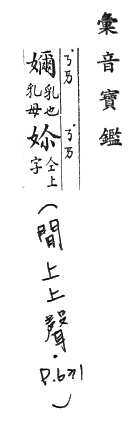 彙音寶鑑
嬭乳也乳母妳仝上字
(間上上聲.